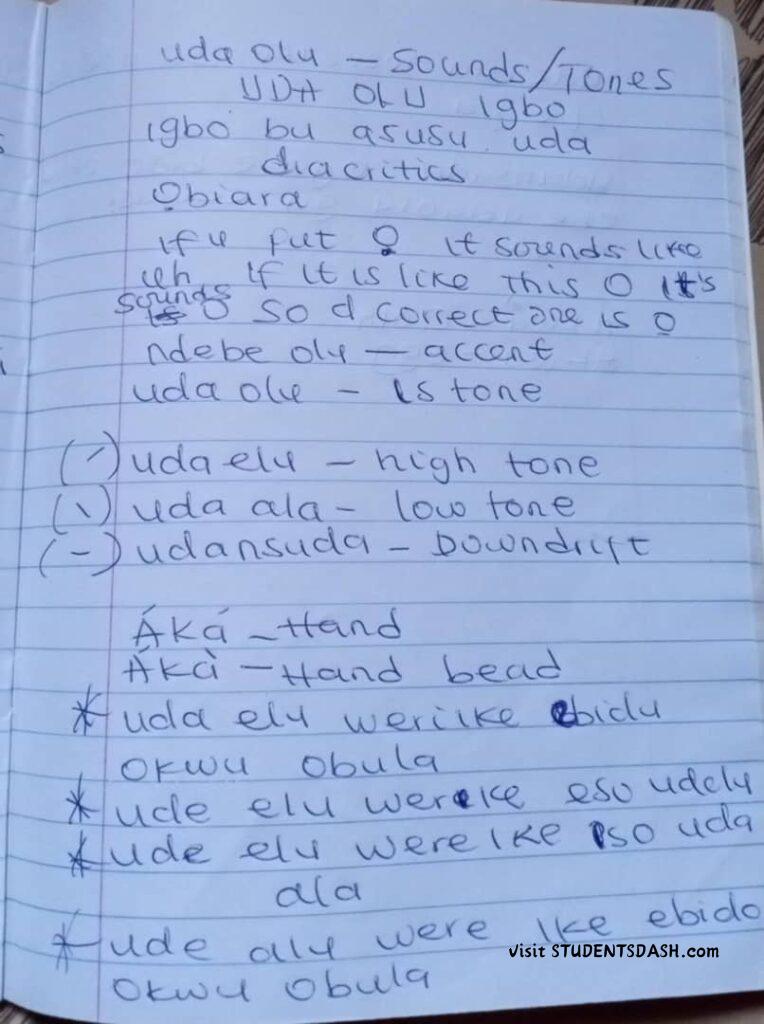 uda olu – sounds/Tones
UDA OLU Igbo
Igbo bu asusu uda
diacritics
Ọbiara
if u put Ọ it sounds like
uh if it is like this O it's
sounds O so d correct one is Ọ
ndebe olu – accent
uda olu – is tone
(/) uda elu – high tone
(\) uda ala – low tone
(–) udansuda – Downdrift
Áká – Hand
Ákà – Hand bead
* uda elu werike ebidu
okwu obula
* ude elu wereke eso udelu
* ude elu were ike iso uda
ala
* ude alu were ike ebido
okwu obula
visit STUDENTSDASH.com